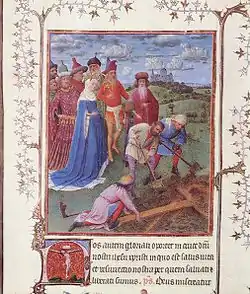 Nos autem gloriari oportet in cruce dñi
nostri ihesu xpisti in quo est salus uita
et resurrectio nostra per quem saluati et
liberati sumus. ps. Deus misereatur